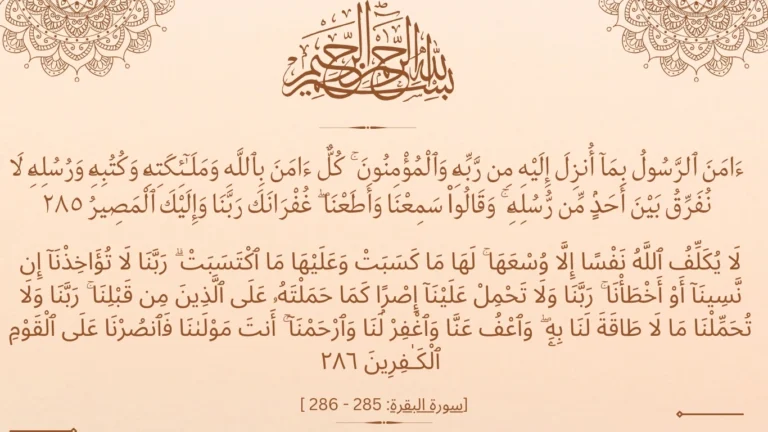 بسم الله الرحمن الرحيم
ءَامَنَ ٱلرَّسُولُ بِمَآ أُنزِلَ إِلَيْهِ مِن رَّبِّهِۦ وَٱلْمُؤْمِنُونَ ۚ كُلٌّ ءَامَنَ بِٱللَّهِ وَمَلَـٰٓئِكَتِهِۦ وَكُتُبِهِۦ وَرُسُلِهِۦ لَا
نُفَرِّقُ بَيْنَ أَحَدٍۢ مِّن رُّسُلِهِۦ ۚ وَقَالُوا۟ سَمِعْنَا وَأَطَعْنَا ۖ غُفْرَانَكَ رَبَّنَا وَإِلَيْكَ ٱلْمَصِيرُ ٢٨٥
لَا يُكَلِّفُ ٱللَّهُ نَفْسًا إِلَّا وُسْعَهَا ۚ لَهَا مَا كَسَبَتْ وَعَلَيْهَا مَا ٱكْتَسَبَتْ ۗ رَبَّنَا لَا تُؤَاخِذْنَآ إِن
نَّسِينَآ أَوْ أَخْطَأْنَا ۚ رَبَّنَا وَلَا تَحْمِلْ عَلَيْنَآ إِصْرًا كَمَا حَمَلْتَهُۥ عَلَى ٱلَّذِينَ مِن قَبْلِنَا ۚ رَبَّنَا وَلَا
تُحَمِّلْنَا مَا لَا طَاقَةَ لَنَا بِهِۦ ۖ وَٱعْفُ عَنَّا وَٱغْفِرْ لَنَا وَٱرْحَمْنَآ ۚ أَنتَ مَوْلَىٰنَا فَٱنصُرْنَا عَلَى ٱلْقَوْمِ
ٱلْكَـٰفِرِينَ ٢٨٦
[سورة البقرة: 285 - 286 ]